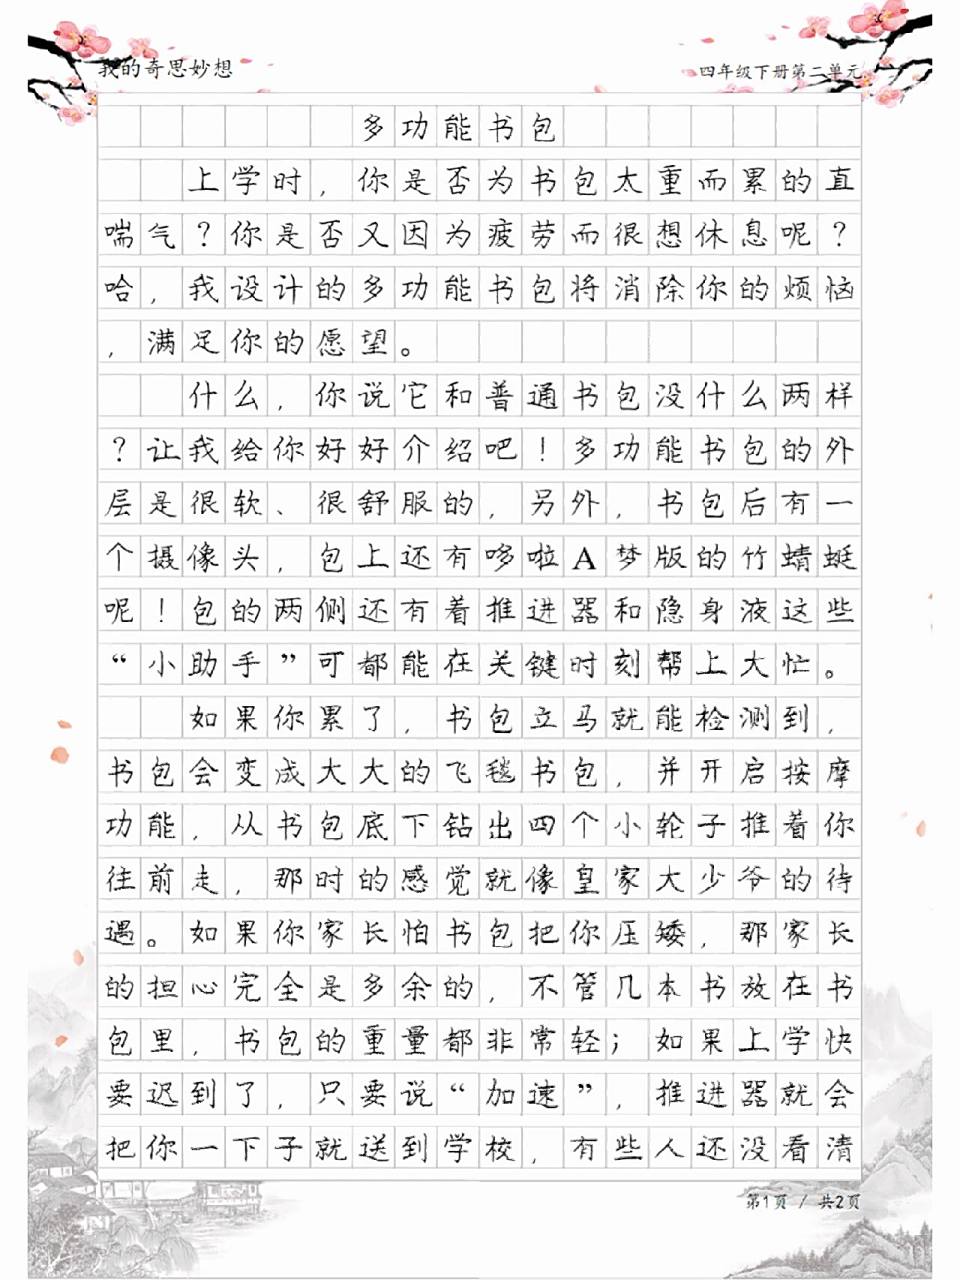 我的奇思妙想
四年级下册第二单元
多功能书包
上学时，你是否为书包太重而累的直
喘气？你是否又因为疲劳而很想休息呢？
哈，我设计的多功能书包将消除你的烦恼
，满足你的愿望。
什么，你说它和普通书包没什么两样
？让我给你好好介绍吧！多功能书包的外
层是很软、很舒服的，另外，书包后有一
个摄像头，包上还有哆啦A梦版的竹蜻蜓
呢！包的两侧还有着推进器和隐身液这些
“小助手”可都能在关键时刻帮上大忙。
如果你累了，书包立马就能检测到，
书包会变成大大的飞毯书包，并开启按摩
功能，从书包底下钻出四个小轮子推着你
往前走，那时的感觉就像皇家大少爷的待
遇。如果你家长怕书包把你压矮，那家长
的担心完全是多余的，不管几本书放在书
包里，书包的重量都非常轻；如果上学快
要迟到了，只要说“加速”，推进器就会
把你一下子就送到学校，有些人还没看清
第1页 / 共2页